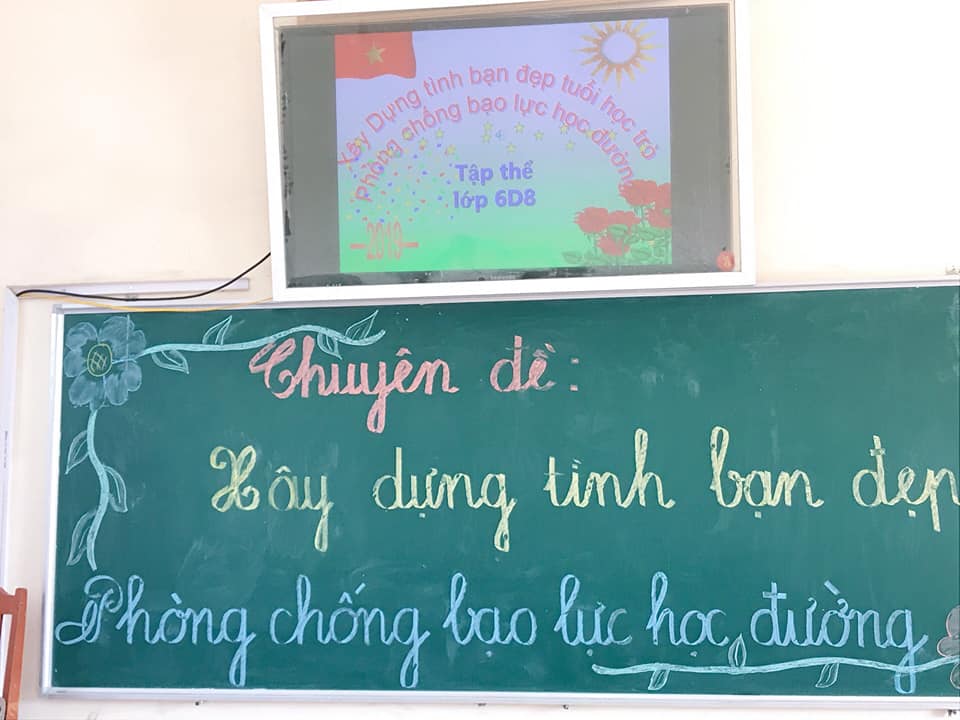 Xây Dựng tình bạn đẹp tuổi học trò
Phòng chống bạo lực học đường
Tập thể
lớp 6D8
2019
Chuyên đề:
Xây dựng tình bạn đẹp
Phòng chống bạo lực học đường